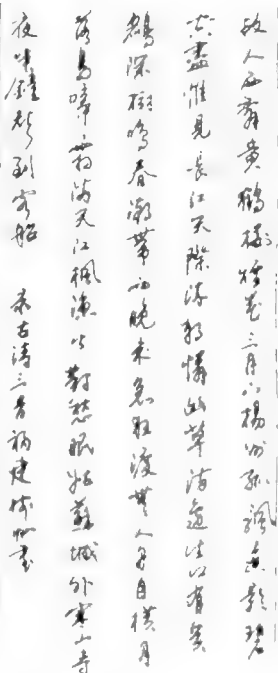 故人西辞黄鹤楼烟花三月下扬州孤帆远影碧
空尽惟见长江天际流独怜幽草涧边生上有黄
鹂深树鸣春潮带雨晚来急野渡无人舟自横月
落乌啼霜满天江枫渔火对愁眠姑苏城外寒山寺
夜半钟声到客船 录古诗三首